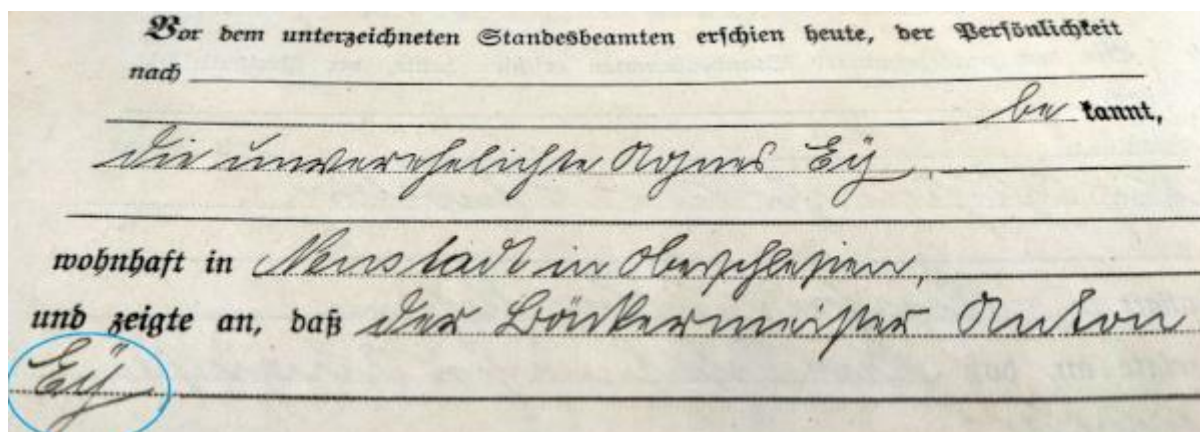 Vor dem unterzeichneten Standesbeamten erschien heute, der Persönlichkeit
nach
be kannt,
die unverehelichte Agnes Eÿ,
wohnhaft in Neustadt in Oberschlesien,
und zeigte an, daß der Bäckermeister Anton
Eÿ